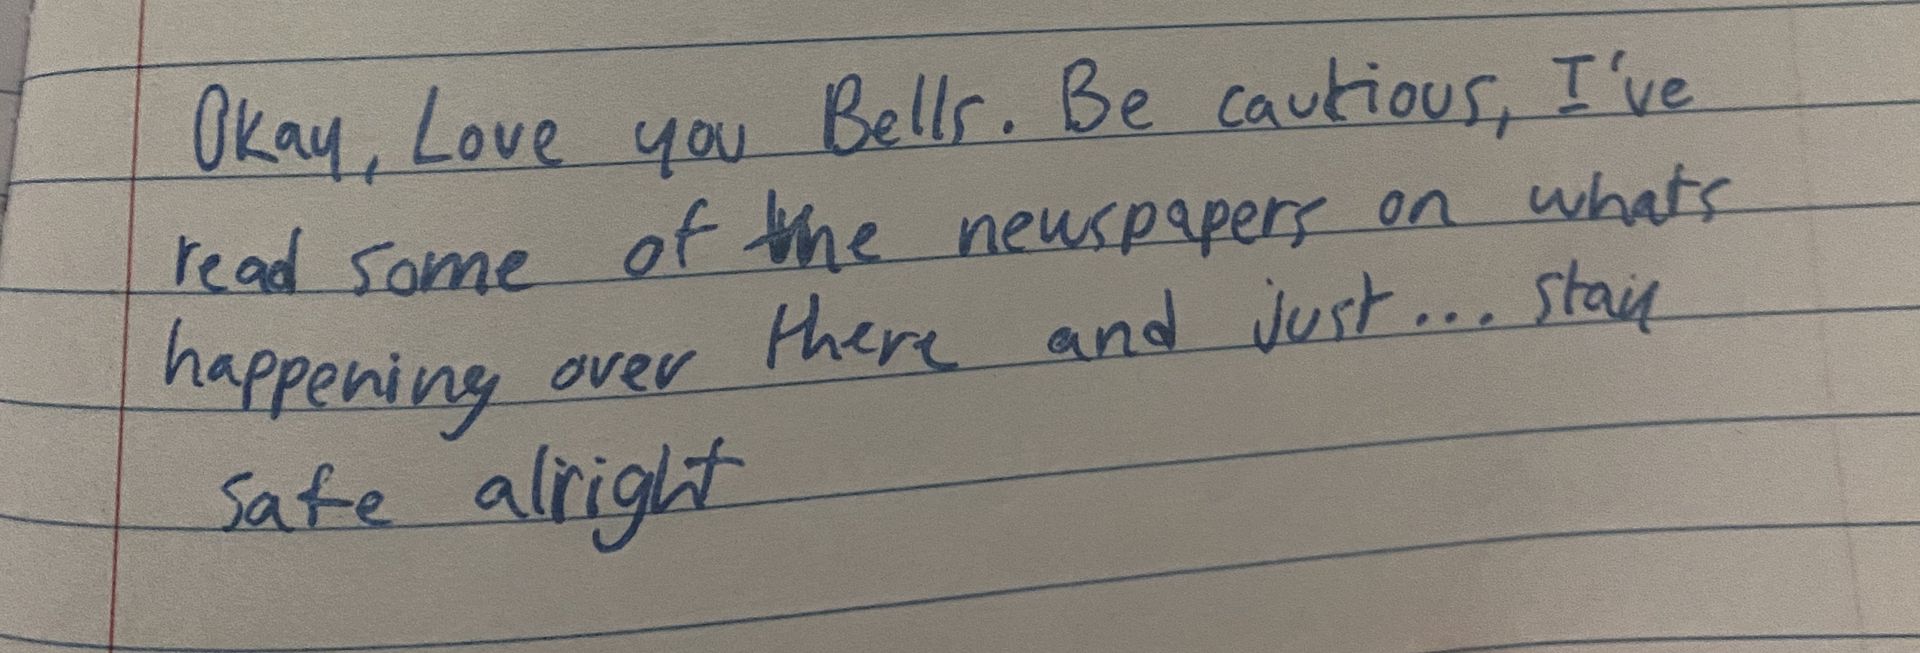 Okay, Love you Bells. Be cautious, I've
read some of the newspapers on whats
happening over there and just... stay
safe alright